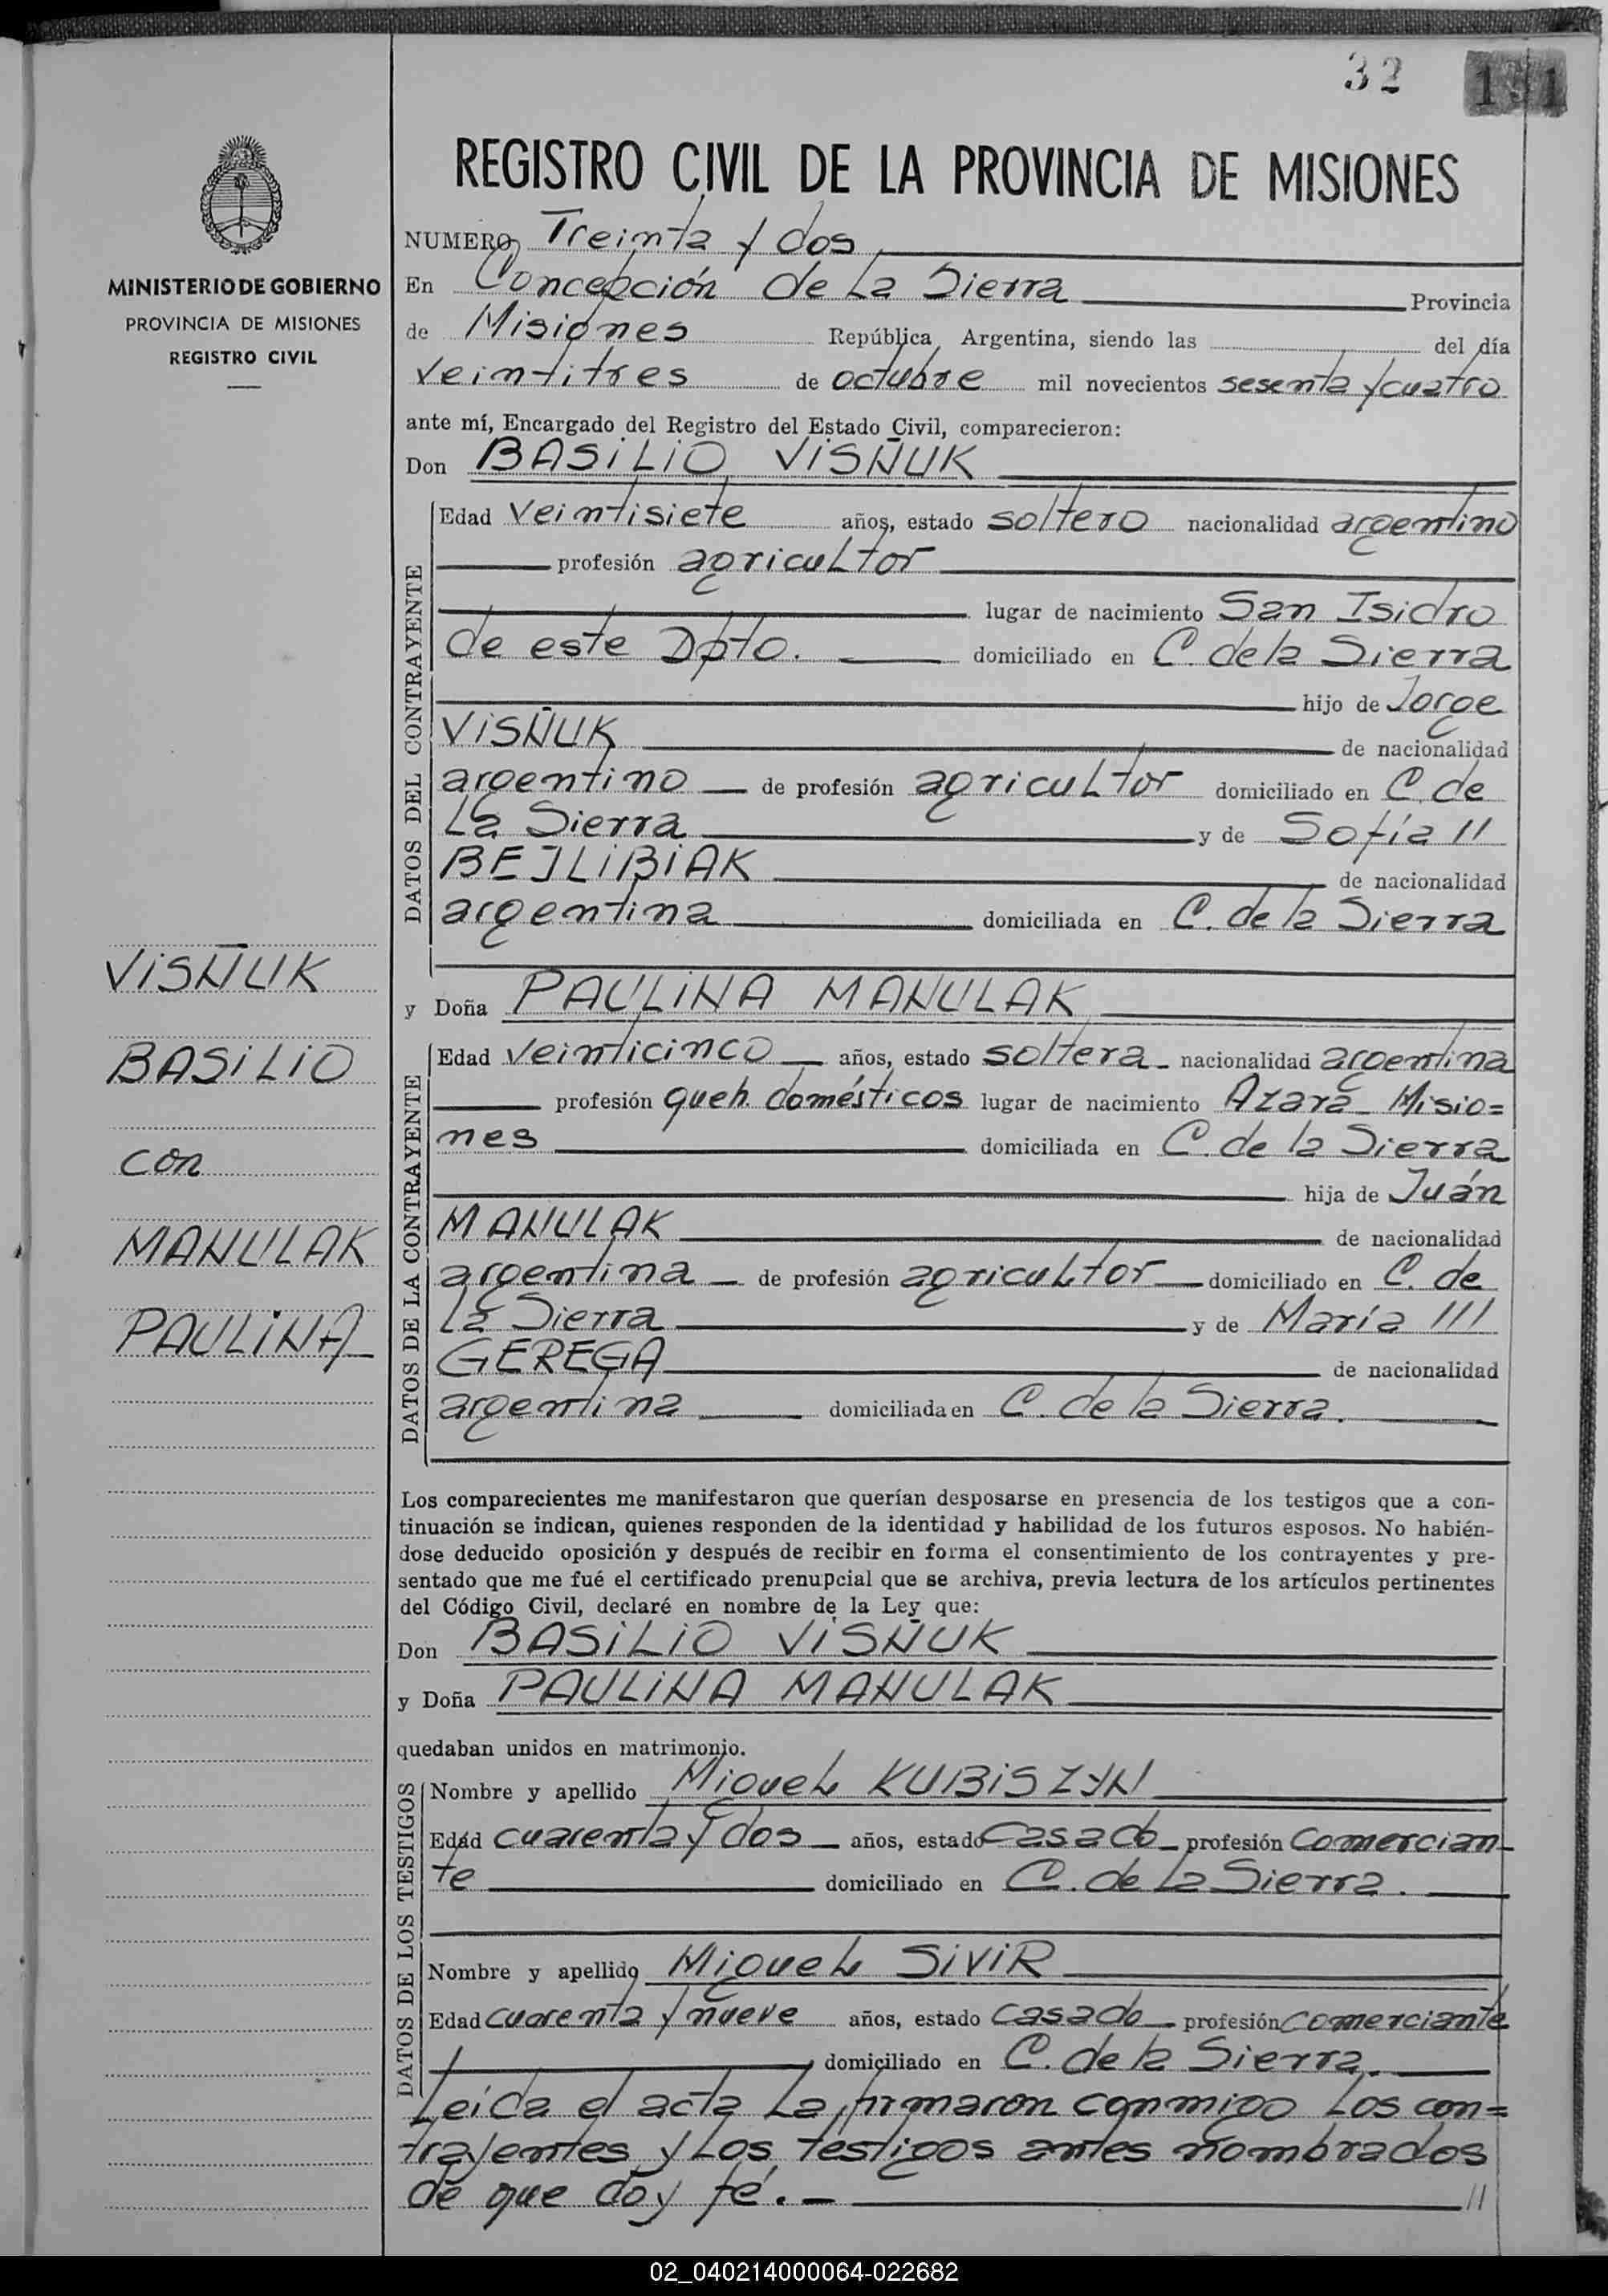 32 191
REGISTRO CIVIL DE LA PROVINCIA DE MISIONES
MINISTERIO DE GOBIERNO
PROVINCIA DE MISIONES
REGISTRO CIVIL
NUMERO Treinta y dos
En Concepción de La Sierra Provincia
de Misiones República Argentina, siendo las del día
veintitres de octubre mil novecientos sesenta y cuatro
ante mí, Encargado del Registro del Estado Civil, comparecieron:
Don BASILIO VISÑUK
DATOS DEL CONTRAYENTE
Edad veintisiete años, estado soltero nacionalidad argentino
profesión agricultor
lugar de nacimiento San Isidro
de este Dpto. domiciliado en C. de la Sierra
hijo de Jorge
VISÑUK de nacionalidad
argentino de profesión agricultor domiciliado en C. de
La Sierra y de Sofía //
BEJLIBIAK de nacionalidad
argentina domiciliada en C. de la Sierra
y Doña PAULINA MANULAK
DATOS DE LA CONTRAYENTE
Edad veinticinco años, estado soltera nacionalidad argentina
profesión queh. domésticos lugar de nacimiento Azara Misio=
nes domiciliada en C. de la Sierra
hija de Juán
MANULAK de nacionalidad
argentina de profesión agricultor domiciliado en C. de
La Sierra y de María ///
GEREGA de nacionalidad
argentina domiciliada en C. de la Sierra.
VISÑUK
BASILIO
con
MANULAK
PAULINA
Los comparecientes me manifestaron que querían desposarse en presencia de los testigos que a con-
tinuación se indican, quienes responden de la identidad y habilidad de los futuros esposos. No habién-
dose deducido oposición y después de recibir en forma el consentimiento de los contrayentes y pre-
sentado que me fué el certificado prenupcial que se archiva, previa lectura de los artículos pertinentes
del Código Civil, declaré en nombre de la Ley que:
Don BASILIO VISÑUK
y Doña PAULINA MANULAK
quedaban unidos en matrimonio.
DATOS DE LOS TESTIGOS
Nombre y apellido Miguel KUBISZYN
Edad cuarenta y dos años, estado casado profesión comercian-
te domiciliado en C. de La Sierra.
Nombre y apellido Miguel SIVIR
Edad cuarenta y nueve años, estado casado profesión comerciante
domiciliado en C. de la Sierra.
Leída el acta La firmaron conmigo Los con=
trayentes y Los testigos antes nombrados
de que doy fé.- //
02_040214000064-022682